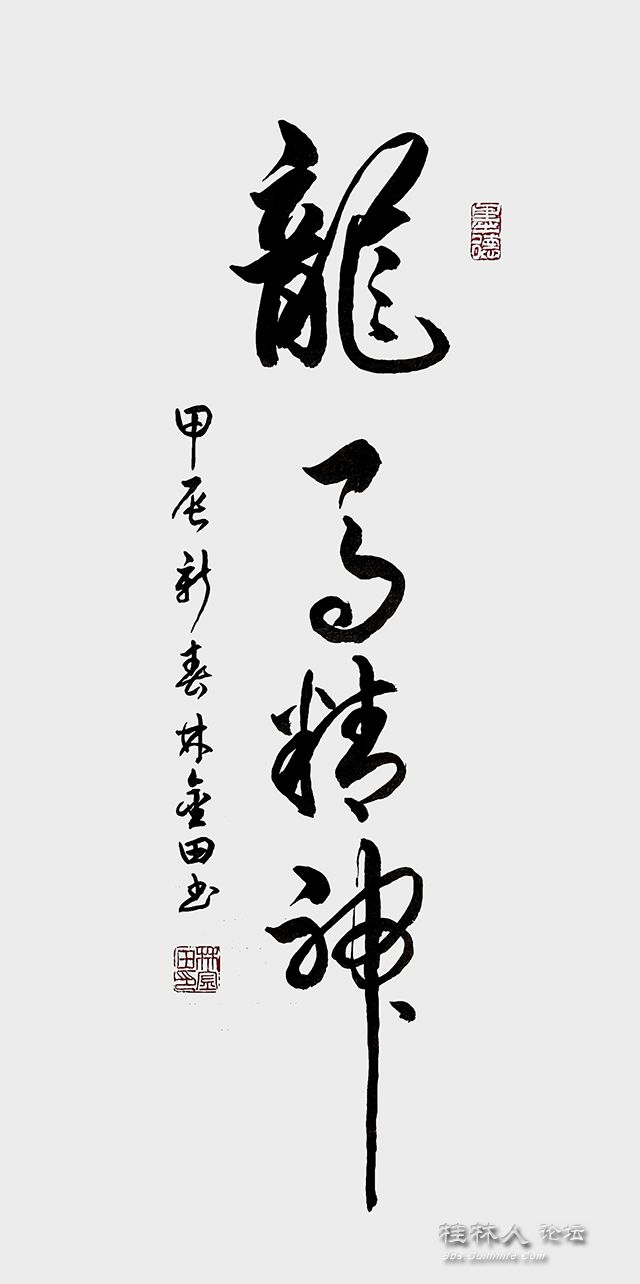 龍馬精神
甲辰新春林金田书
墨德
林金田印
桂林人论坛
bbs.guilinlife.com